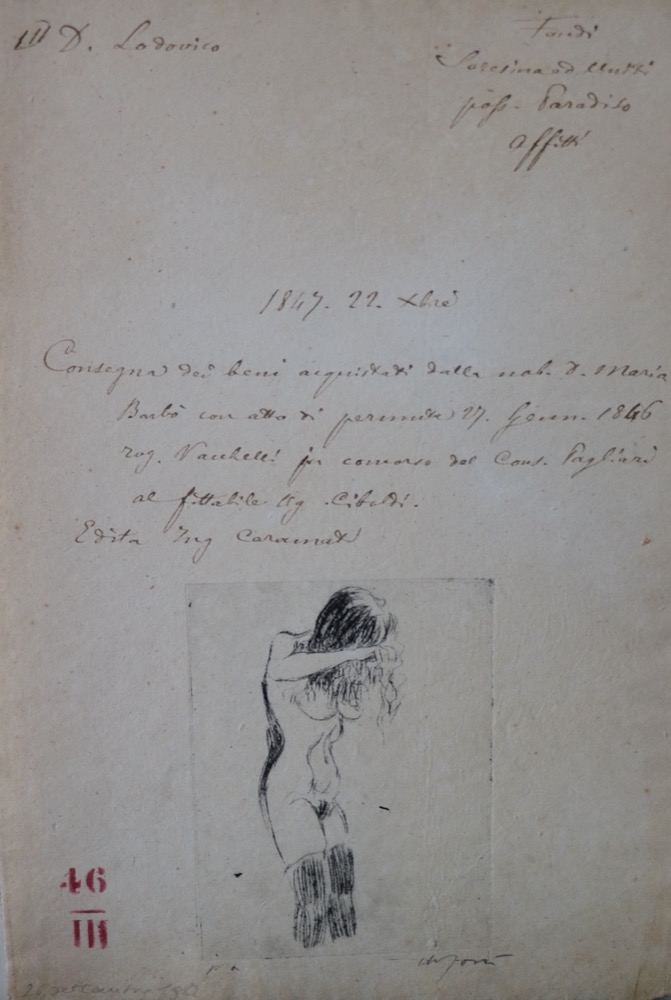 III D. Lodovico
Fondi
Soresina ed Uniti
poss. Paradiso
Affitti
1847. 22. Xbre
Consegna dei beni acquistati dalla nob. D. Maria
Barbò con atto di permuta 27. Genn. 1846
rog. Vacchelli in concorso del Cons. Pagliari
al fittabile Sig. Ciboldi.
Edita Ing Caramati
46
III
p. a